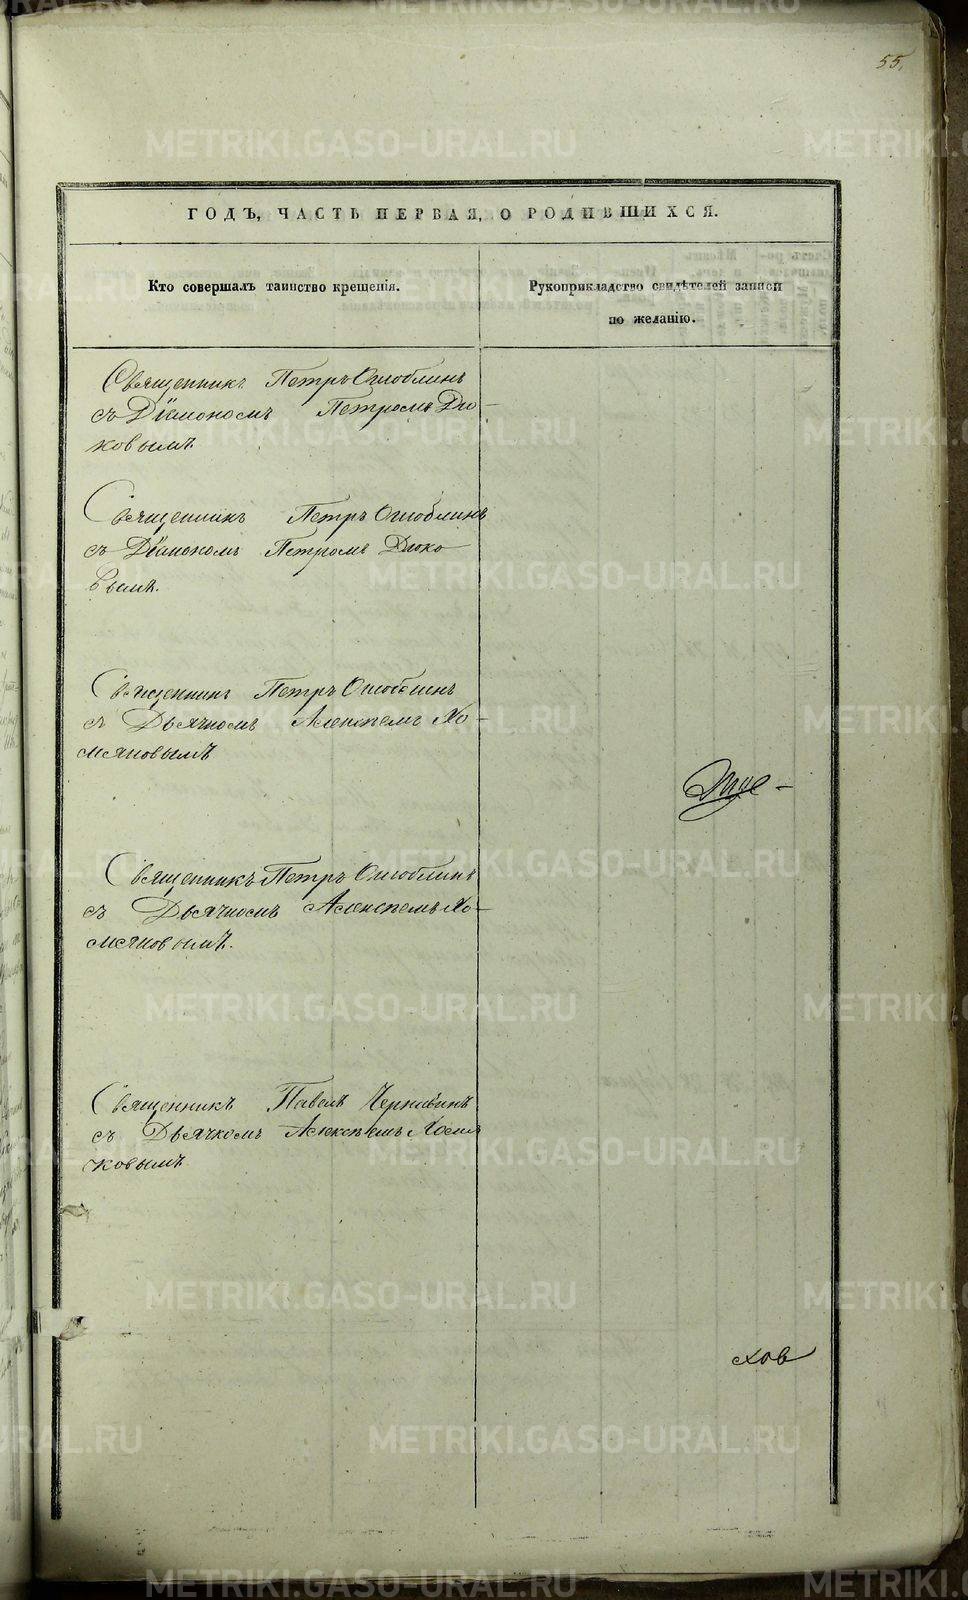 55.
ГОДЪ, ЧАСТЬ ПЕРВАЯ, О РОДИВШИХСЯ.
Кто совершалъ таинство крещенія.
Рукоприкладство свидѣтелей записи
по желанію.
Священникъ Петръ Оглоблинъ
съ Діакономъ Петромъ Дю-
ковымъ.
Священникъ Петръ Оглоблинъ
съ Діакономъ Петромъ Дюко
вымъ.
Священникъ Петръ Оглоблинъ
съ Дьячкомъ Алексѣемъ Хо-
мяковымъ
Священникъ Петръ Оглоблинъ
съ Дьячкомъ Алексѣемъ Хо-
мяковымъ.
Священникъ Павелъ
съ Дьячкомъ Алексѣемъ Хомя
ковымъ.
ховъ
METRIKI.GASO-URAL.RU